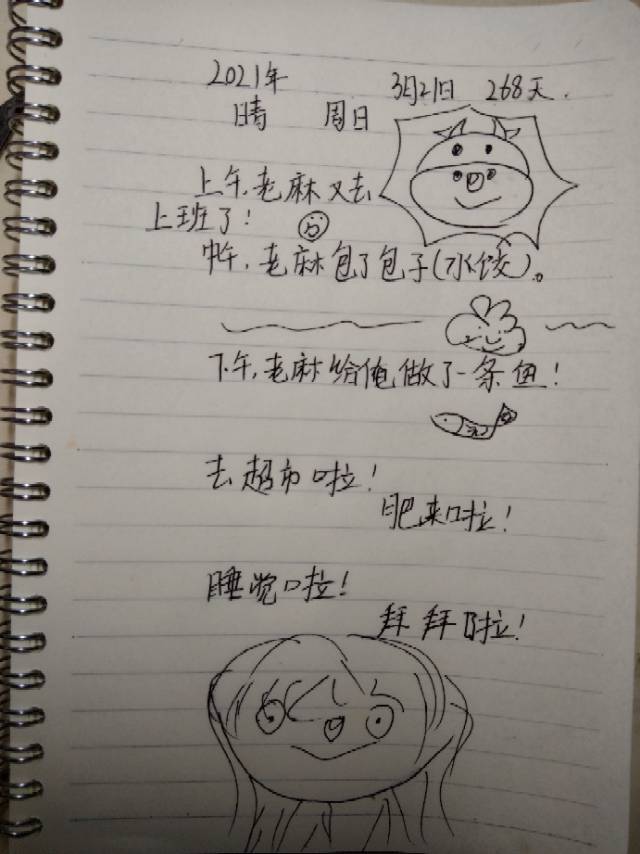 2021年 3月21日 268天.
晴 周日
上午,老麻又去
上班了!
中午,老麻包了包子(水饺)。
下午,老麻给俺做了一条鱼!
去超市啦!
肥来啦!
睡觉啦!
拜拜啦!